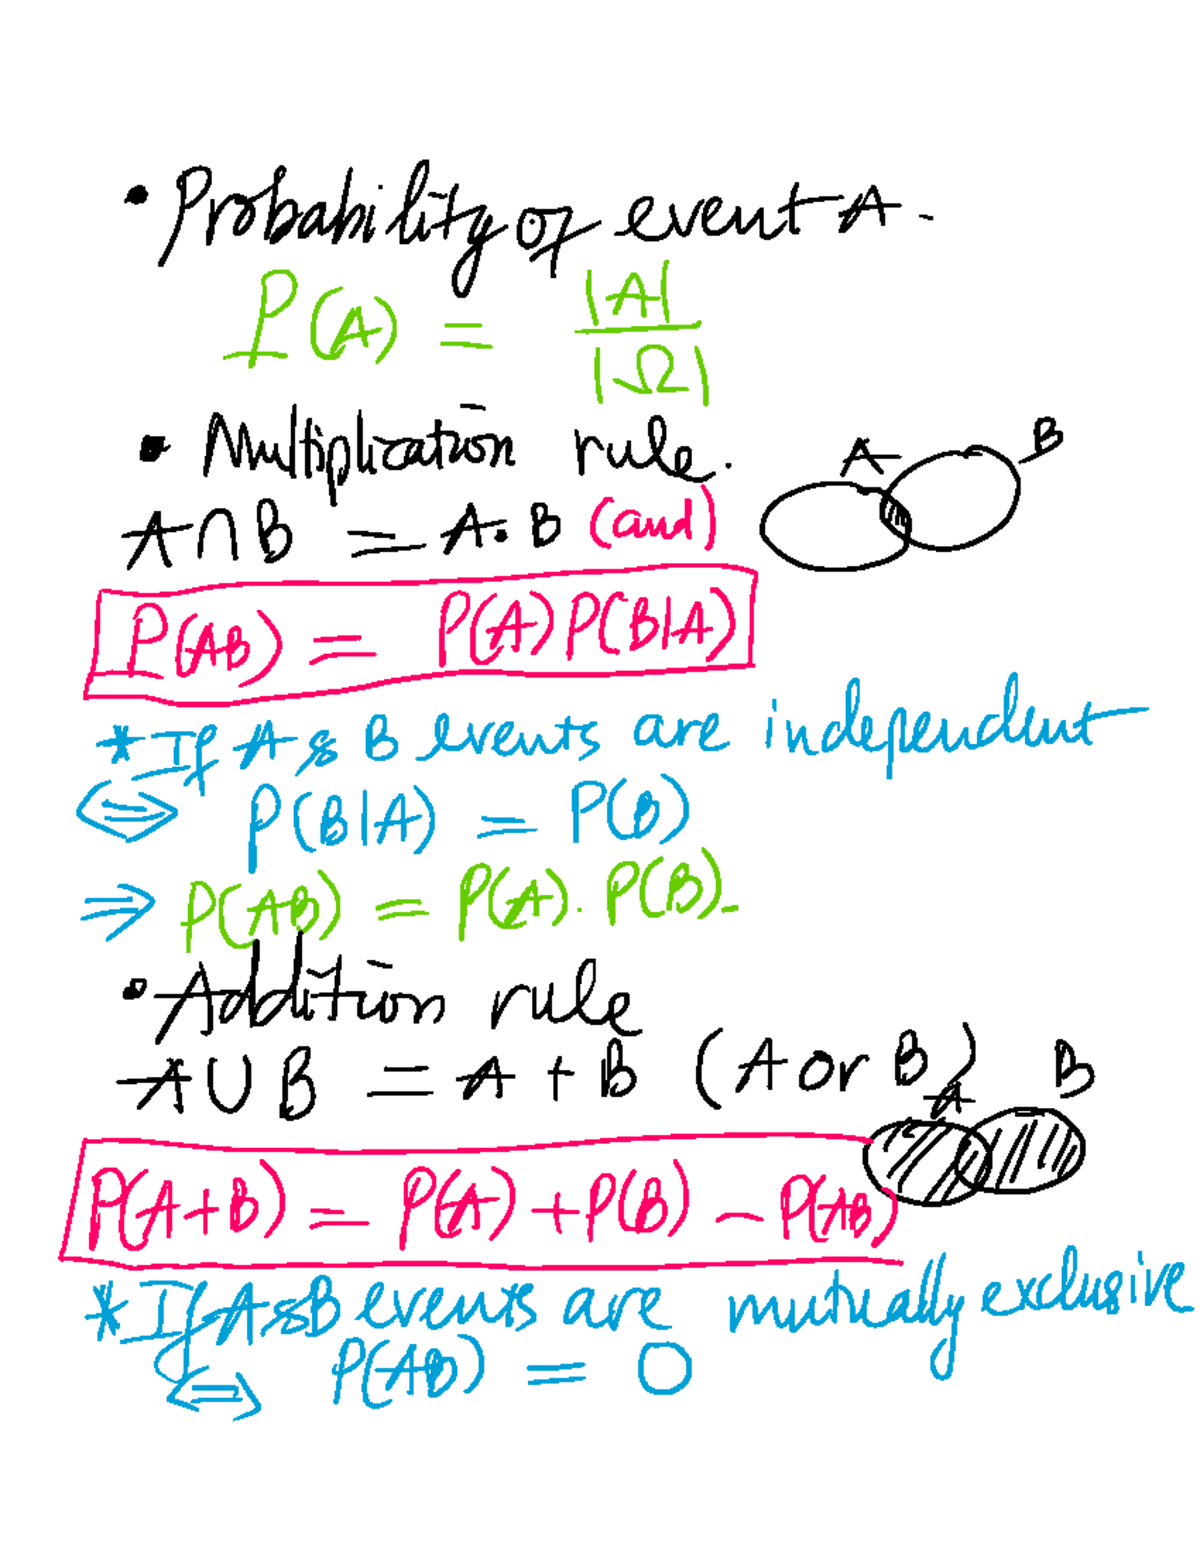 • Probability of event A.
P(A) = |A| / |Ω|
• Multiplication rule.
A B
A∩B = A.B (and)
P(AB) = P(A)P(B|A)
* If A & B events are independent
⇔ P(B|A) = P(B)
⇒ P(AB) = P(A). P(B).
• Addition rule
A∪B = A + B (A or B)
A B
P(A+B) = P(A) + P(B) − P(AB)
* If A & B events are mutually exclusive
⇔ P(AB) = 0